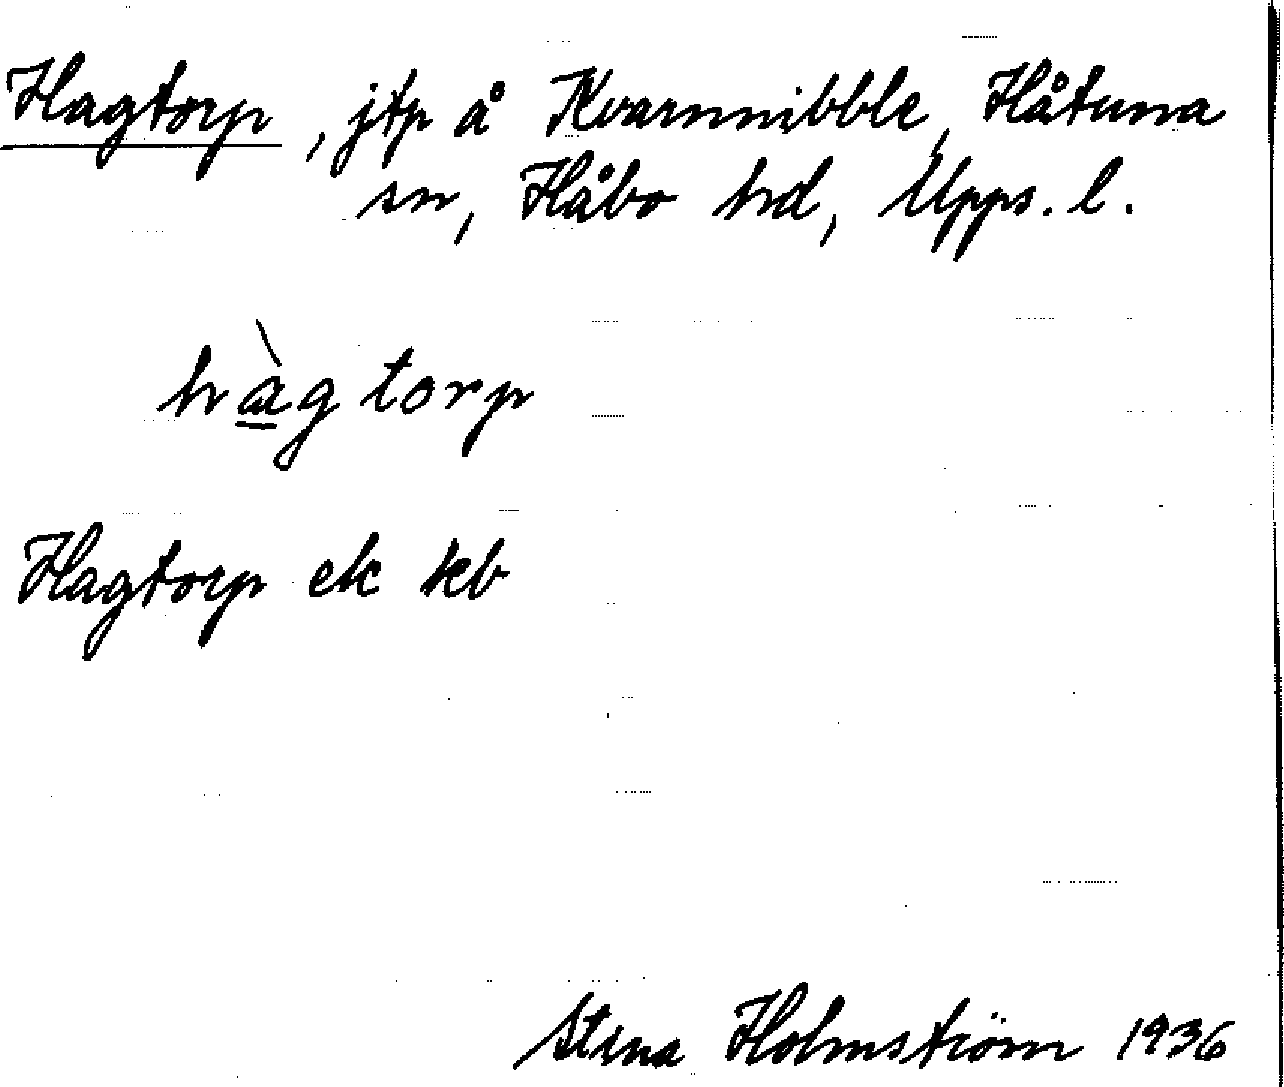 Hagtorp, jtp å Kvarnnibble, Håtuna
sn, Håbo hd, Upps. l.
hàgtorp
Hagtorp ek kb
Stina Holmström 1936